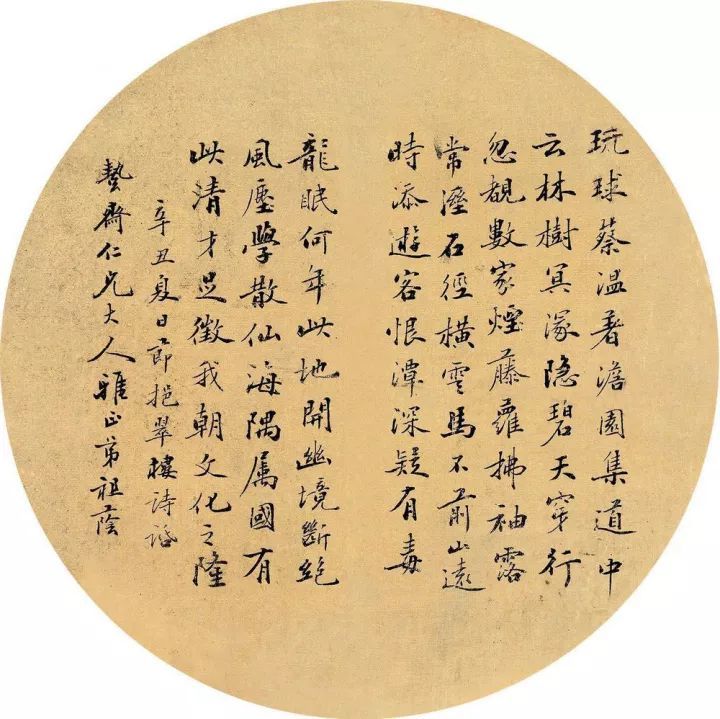 琉球蔡温著澹園集道中
云林樹冥濛隐碧天穿行
忽覩數家煙藤蘿拂袖露
常溼石徑橫雲馬不前山遠
時添遊客恨潭深疑有毒
龍眠何年此地開幽境斷絶
風塵學散仙海隅属國有
此清才足徵我朝文化之隆
辛丑夏日節挹翠樓詩話
藝齋仁兄大人雅正弟祖蔭